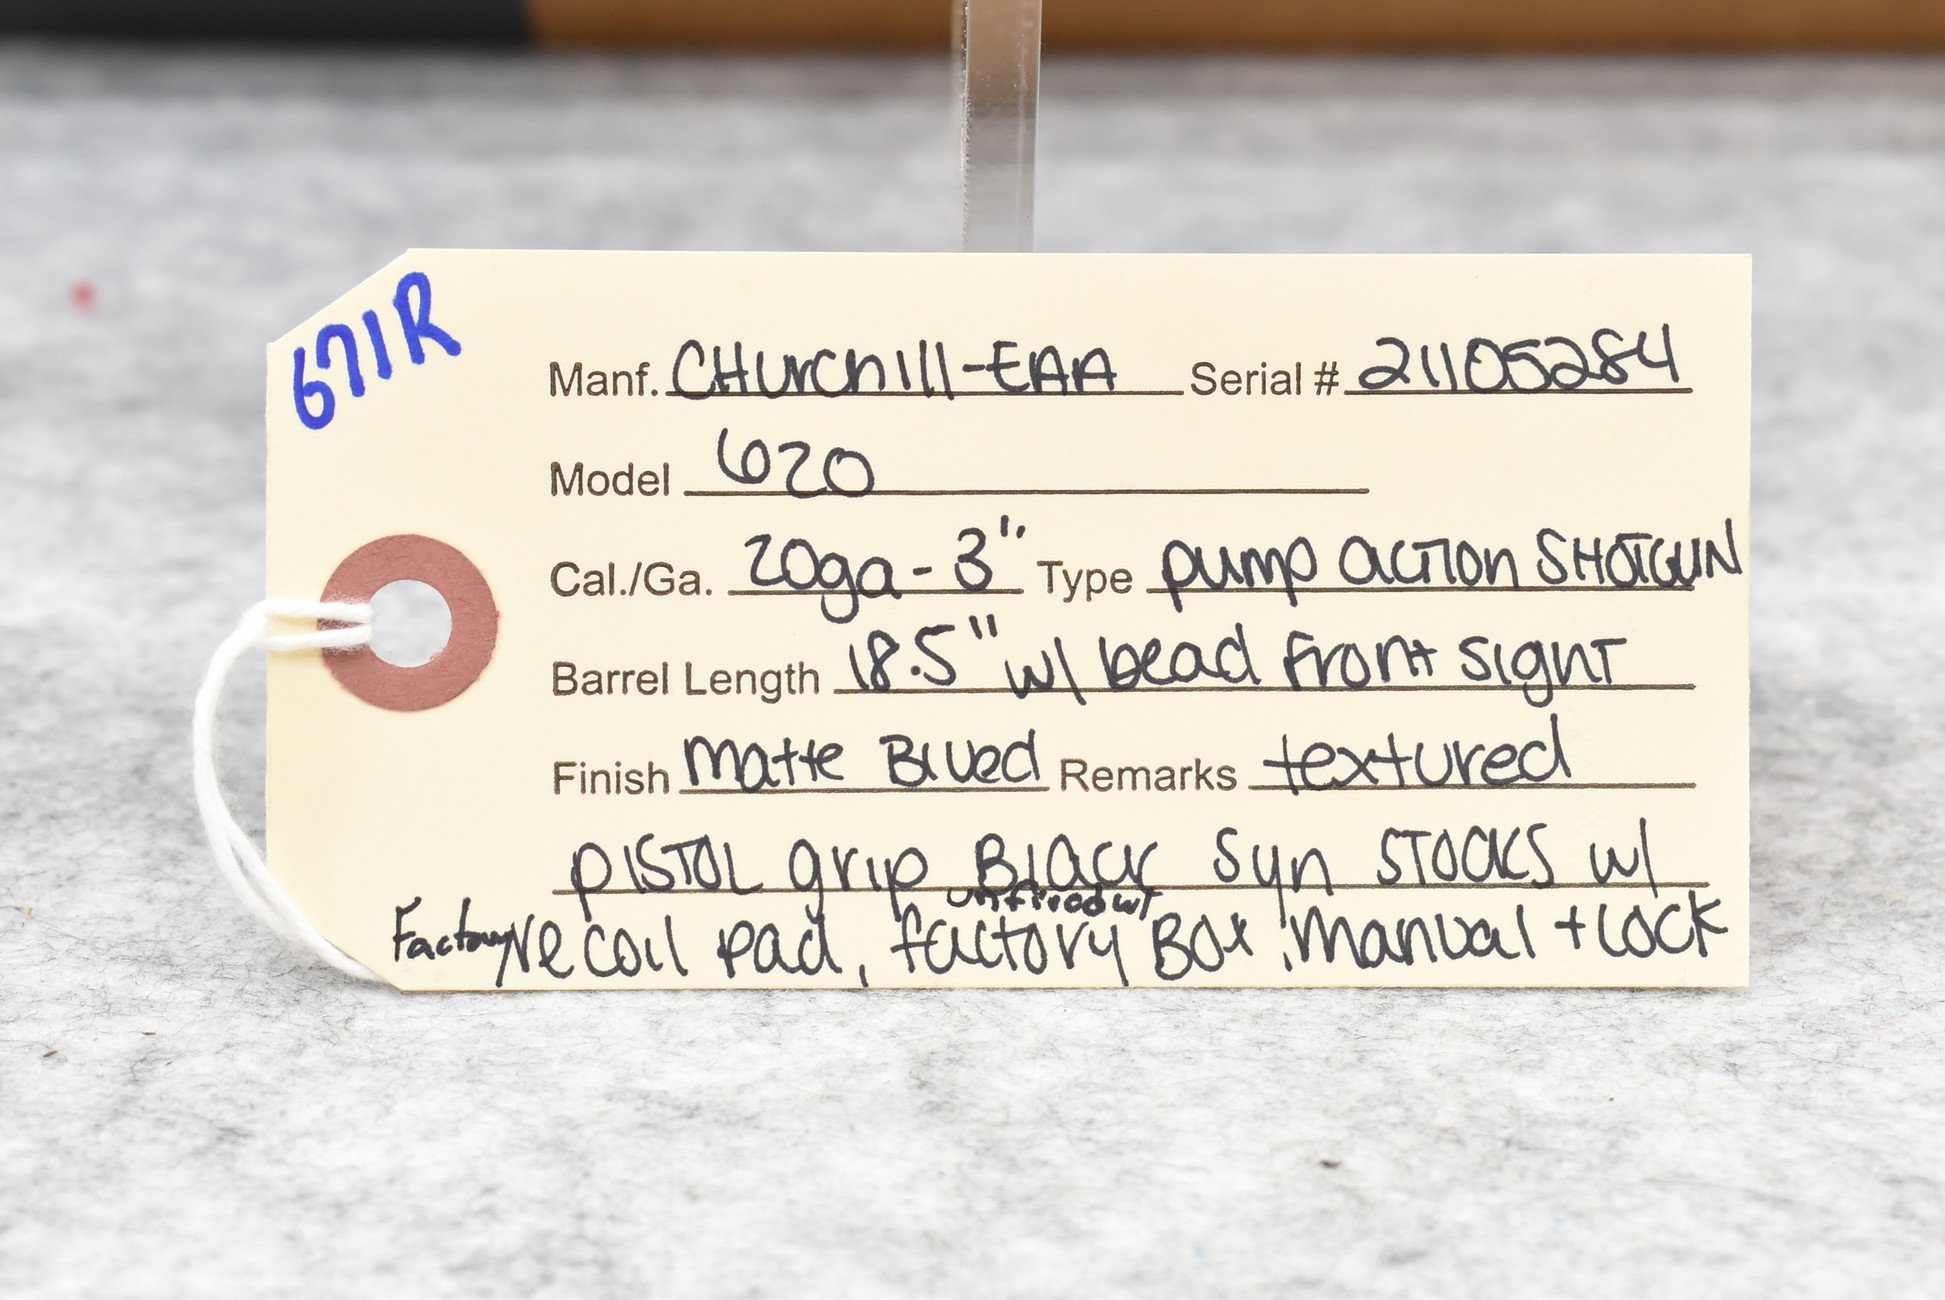 671R
Manf. CHurchill-EAA Serial # 21105284
Model 620
Cal./Ga. 20ga-3" Type pump action SHOTGUN
Barrel Length 18.5" w/ bead front sight
Finish Matte Blued Remarks textured
PISTOL grip Black Syn STOCKS w/
unfired w/
Factory recoil pad, factory Box, manual + LOCK